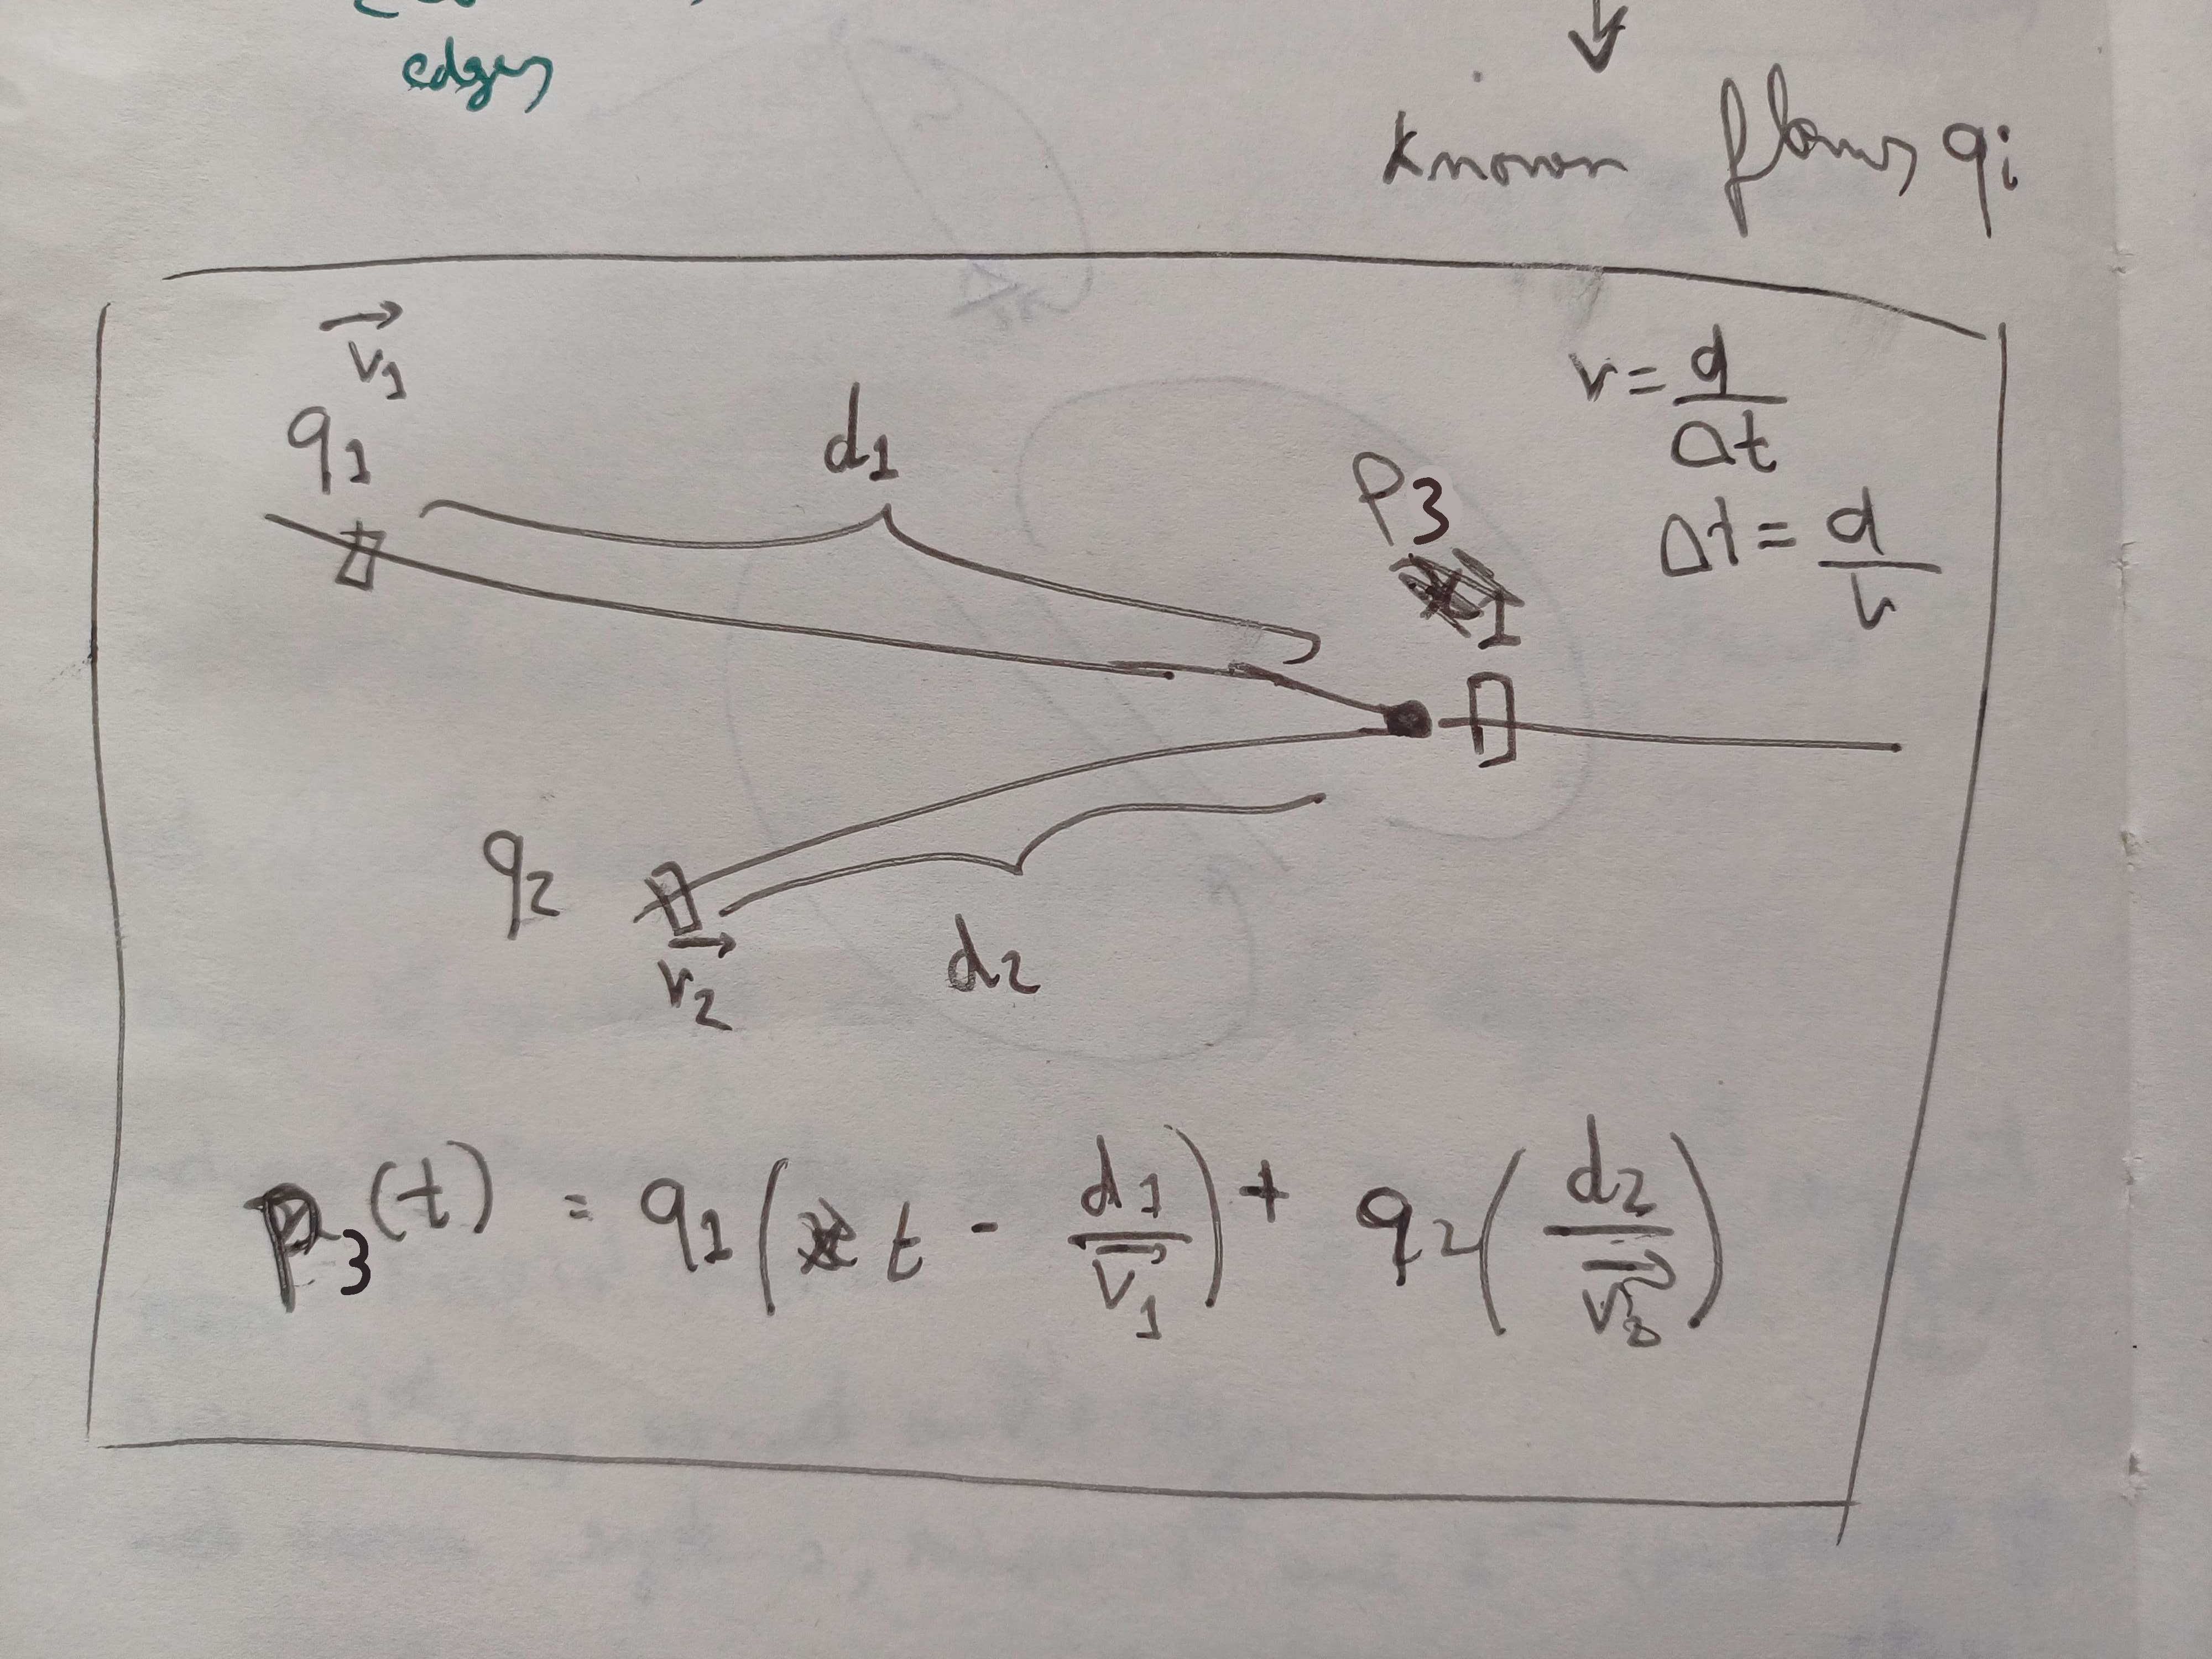 edges
Known flows qi
v1
q1
d1
v = d/Δt
Δt = d/v
P3
1
q2
v2
d2
P3(t) = q1(t - d1/v1) + q2(d2/v3)